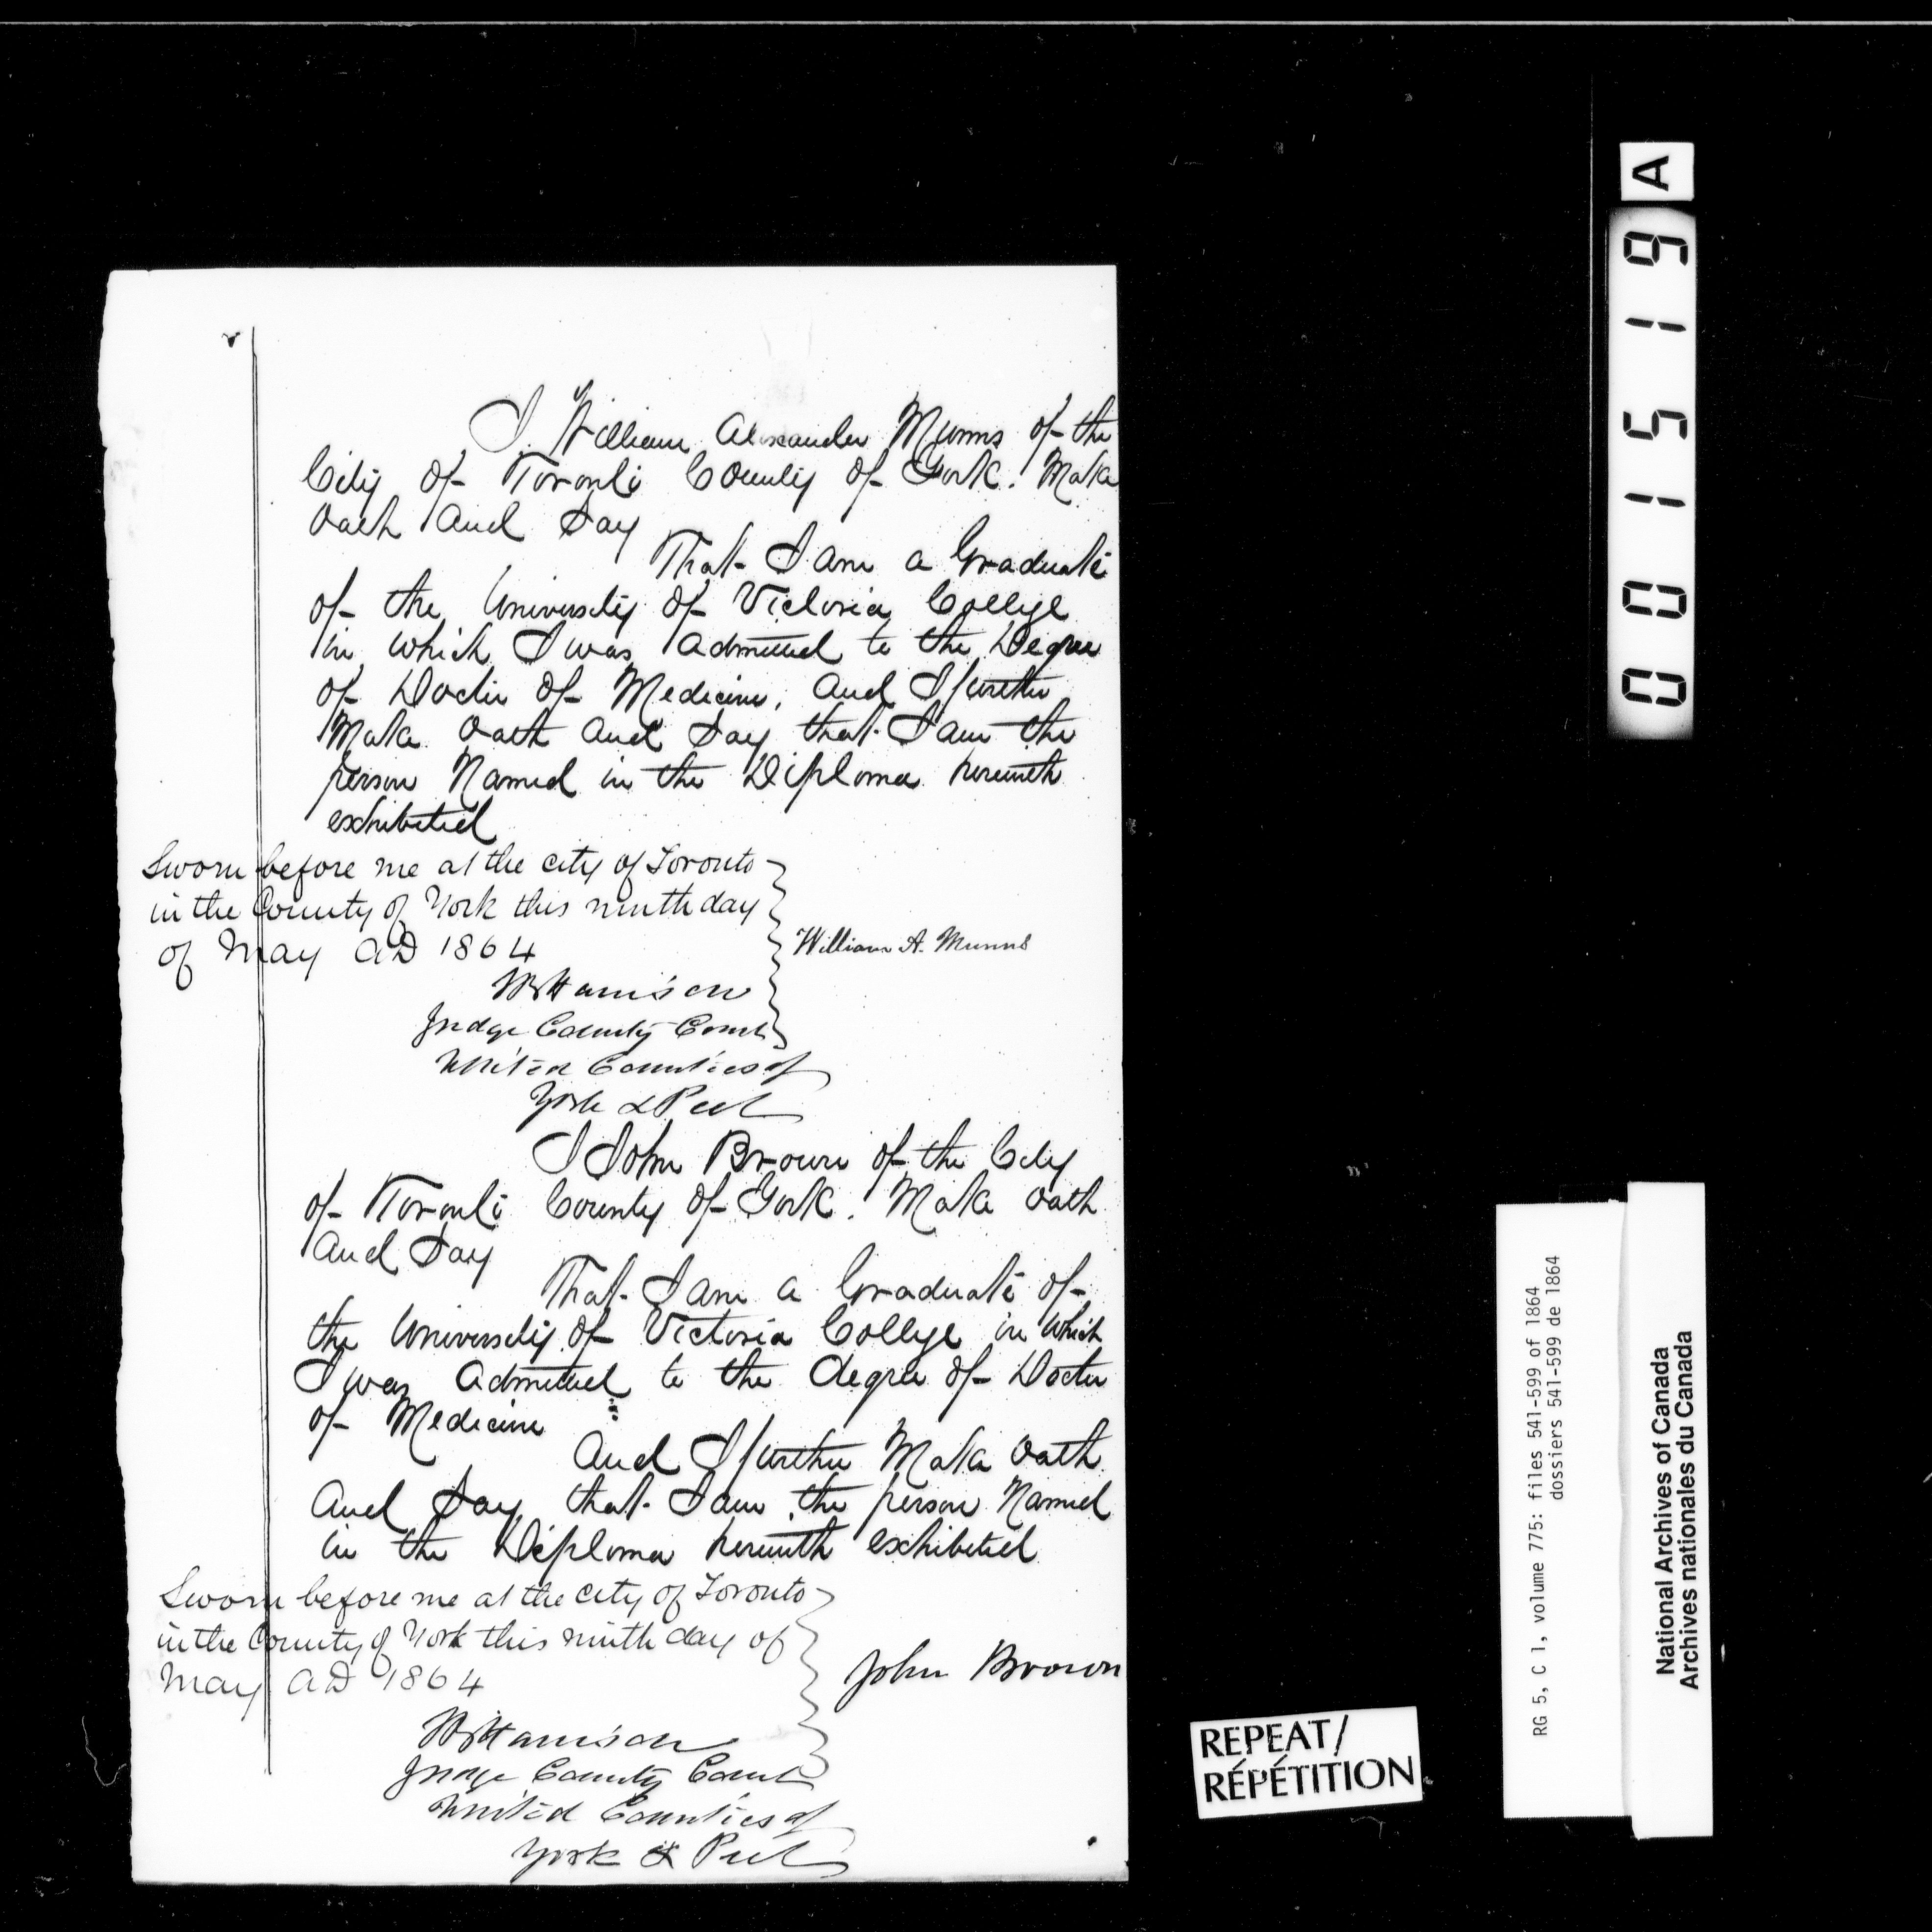 I. William Alexander Munns of the
City of Toronto County of York. Make
Oath And Say
That I am a Graduate
of the University of Victoria College
in which I was Admitted to the Degree
of Doctor of Medicine, And I further
Make Oath And Say that I am the
person Named in the Diploma herewith
exhibited
Sworn before me at the city of Toronto
in the County of York this ninth day
of May AD 1864
William A. Munns
Harrison
Judge County Court
United Counties of
York & Peel
I John Brown of the City
of Toronto County of York. Make Oath
And Say
That I am a Graduate of
the University of Victoria College in which
I was Admitted to the degree of Doctor
of Medicine
And I further Make Oath
And Say that I am the person Named
in the Diploma herewith exhibited
Sworn before me at the city of Toronto
in the County of York this ninth day of
May AD 1864
John Brown
Harrison
Judge County Court
United Counties of
York & Peel
001519 A
REPEAT/
RÉPÉTITION
RG 5, C 1, volume 775: files 541-599 of 1864
dossiers 541-599 de 1864
National Archives of Canada
Archives nationales du Canada